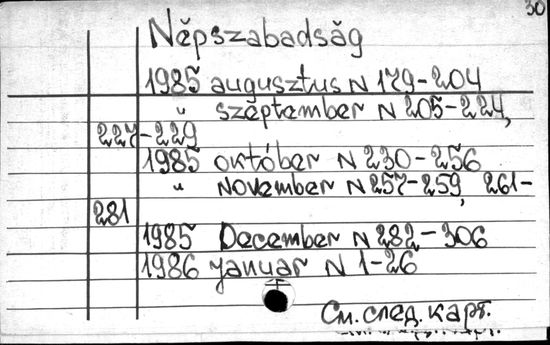 30
Népszabadság
1985 augusztus N 179-204
" szeptember N 205-224,
227-229
1985 október N 230-256
" November N 257-259, 261-
281
1985 December N 282-306
1986 januar N 1-26
См. след. карт.